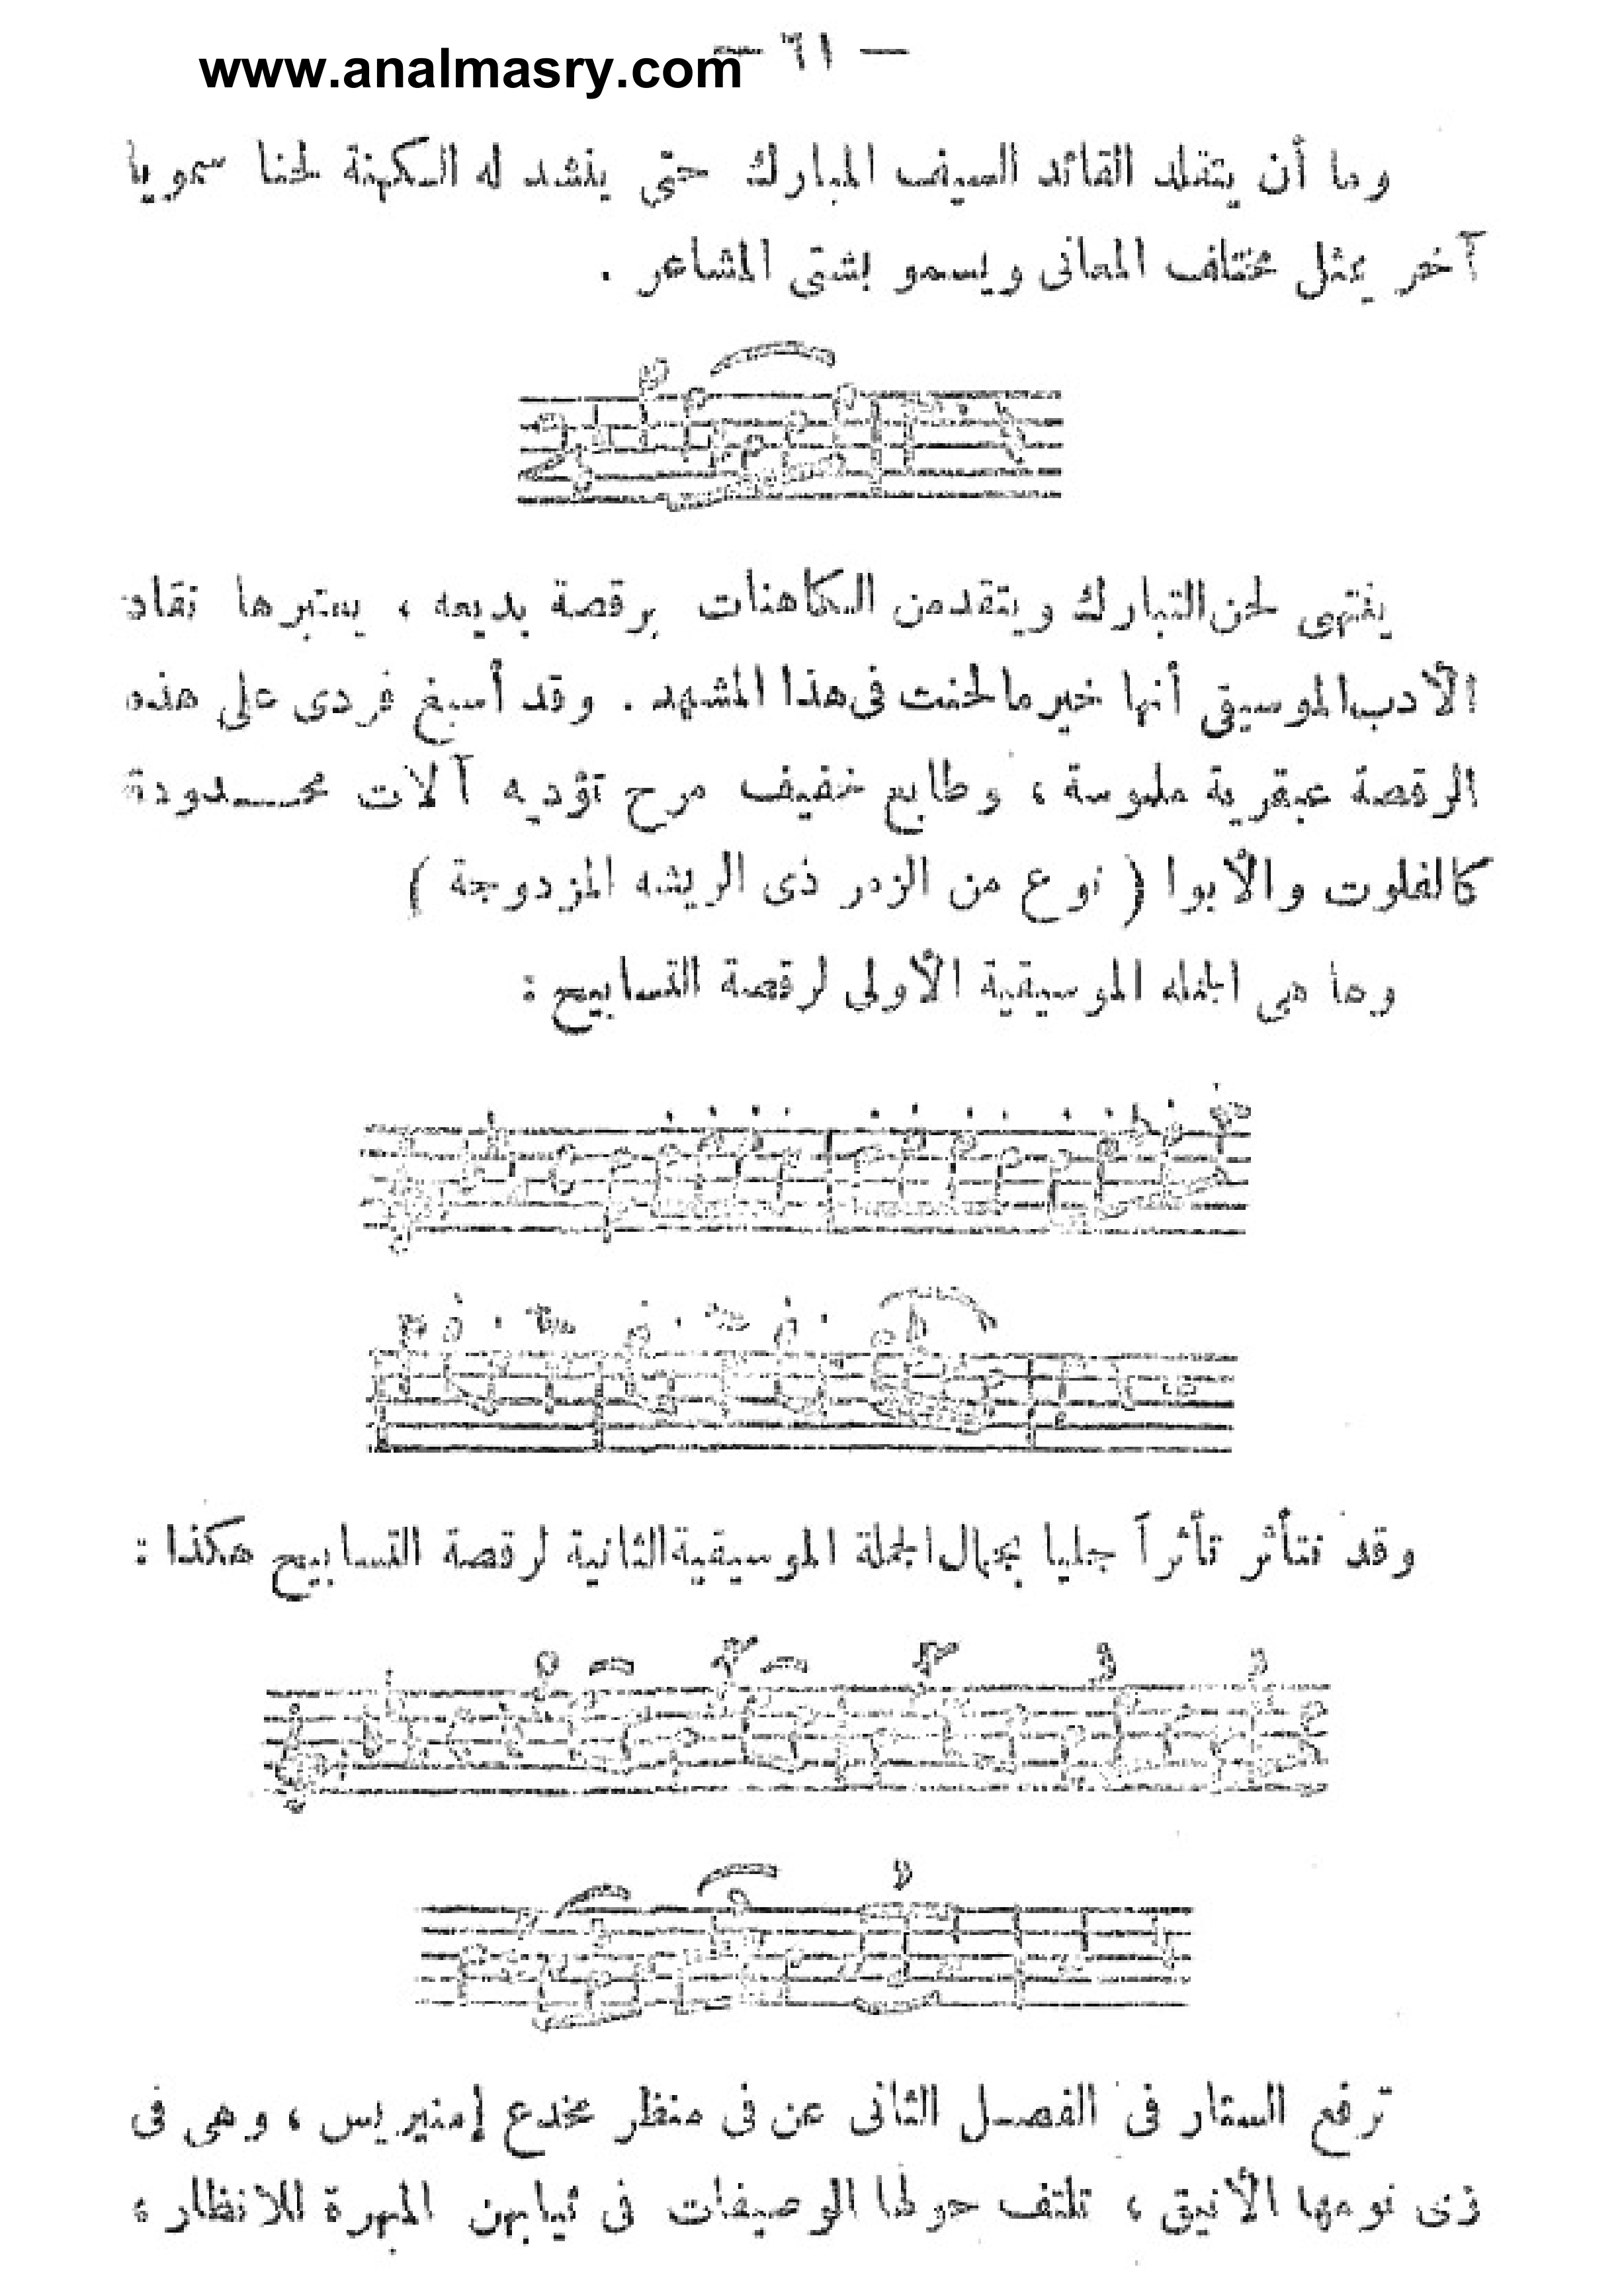 www.analmasry.com
— ٦١ —
وما أن يتقلد القائد السيف المبارك حتى ينشد له الكهنة لحنا سمويا
آخر يمثل مختلف المعانى ويسمو بشتى المشاعر .
ينتهى لحن التبارك ويتقدمن الكاهنات برقصة بديعه ، يعتبرها نقاد
الأدب الموسيقى أنها خير ما لحنت فى هذا المشهد . وقد أسبغ فردى على هذه
الرقصة عبقرية ملموسة ، وطابع خفيف مرح تؤديه آلات محدودة
كالفلوت والأبوا ( نوع من الزمر ذى الريشه المزدوجة )
وها هى الجمله الموسيقية الأولى لرقصة التسابيح :
وقد نتأثر تأثراً جليا بجمال الجملة الموسيقية الثانية لرقصة التسابيح هكذا :
ترفع الستار فى الفصل الثانى عن فى منظر مخدع إمنيريس ، وهى فى
ذى نومها الأنيق ، تلتف حولها الوصيفات فى ثيابهن المبهرة للانظار ،